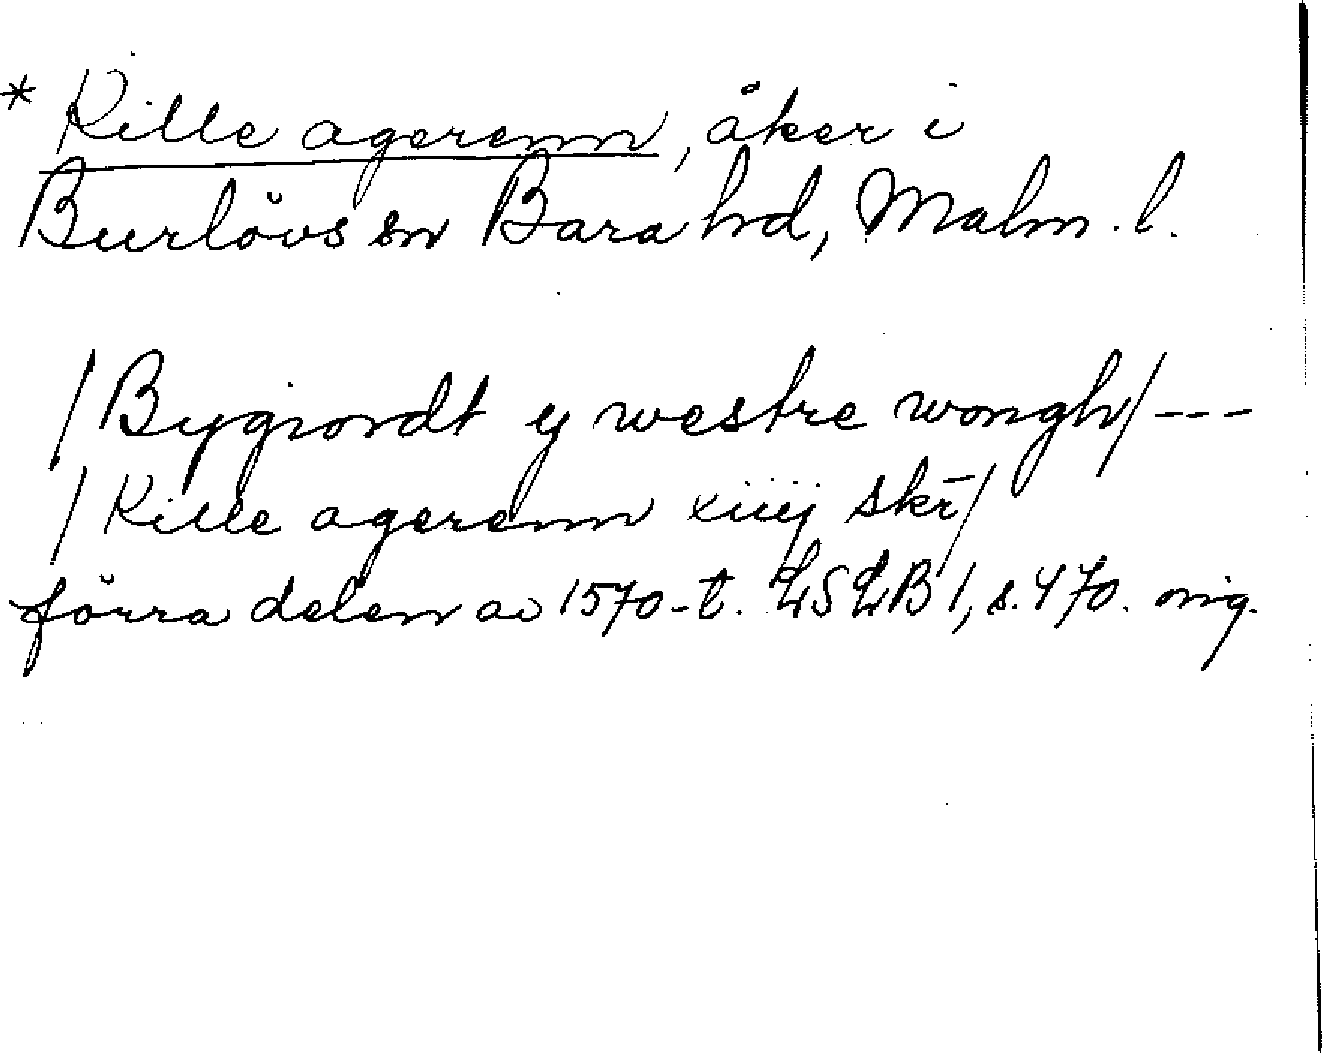 * Kille agerenn, åker i
Burlövs sn Bara hd, Malm. l.
/Bygiordt y westre wongh/ ---
/Kille agerenn xiiij skr̄/
förra delen av 1570-t. LSLB 1, s. 470. orig.